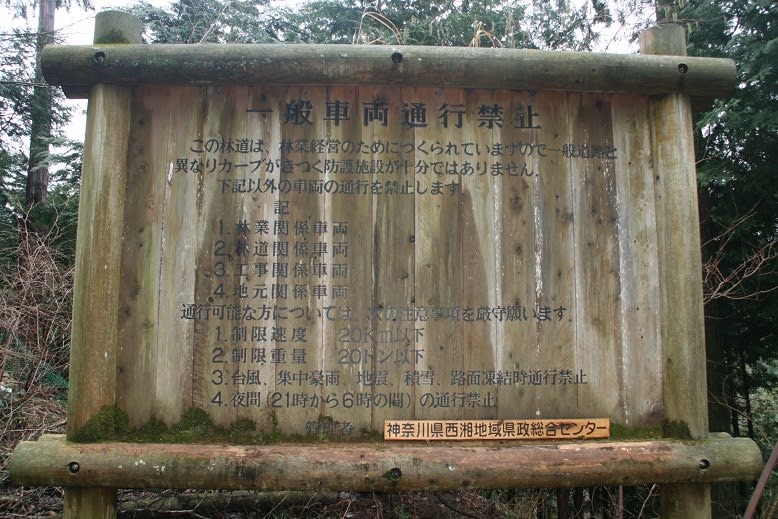 一般車両通行禁止
この林道は、林業経営のためにつくられていますので一般道路と
異なりカーブがきつく防護施設が十分ではありません.
下記以外の車両の通行を禁止します.
記
1.林業関係車両
2.林道関係車両
3.工事関係車両
4.地元関係車両
通行可能な方については、次の注意事項を厳守願います.
1.制限速度 20Km以下
2.制限重量 20トン以下
3.台風、集中豪雨、地震、積雪、路面凍結時通行禁止
4.夜間(21時から6時の間)の通行禁止
管理者 神奈川県西湘地域県政総合センター